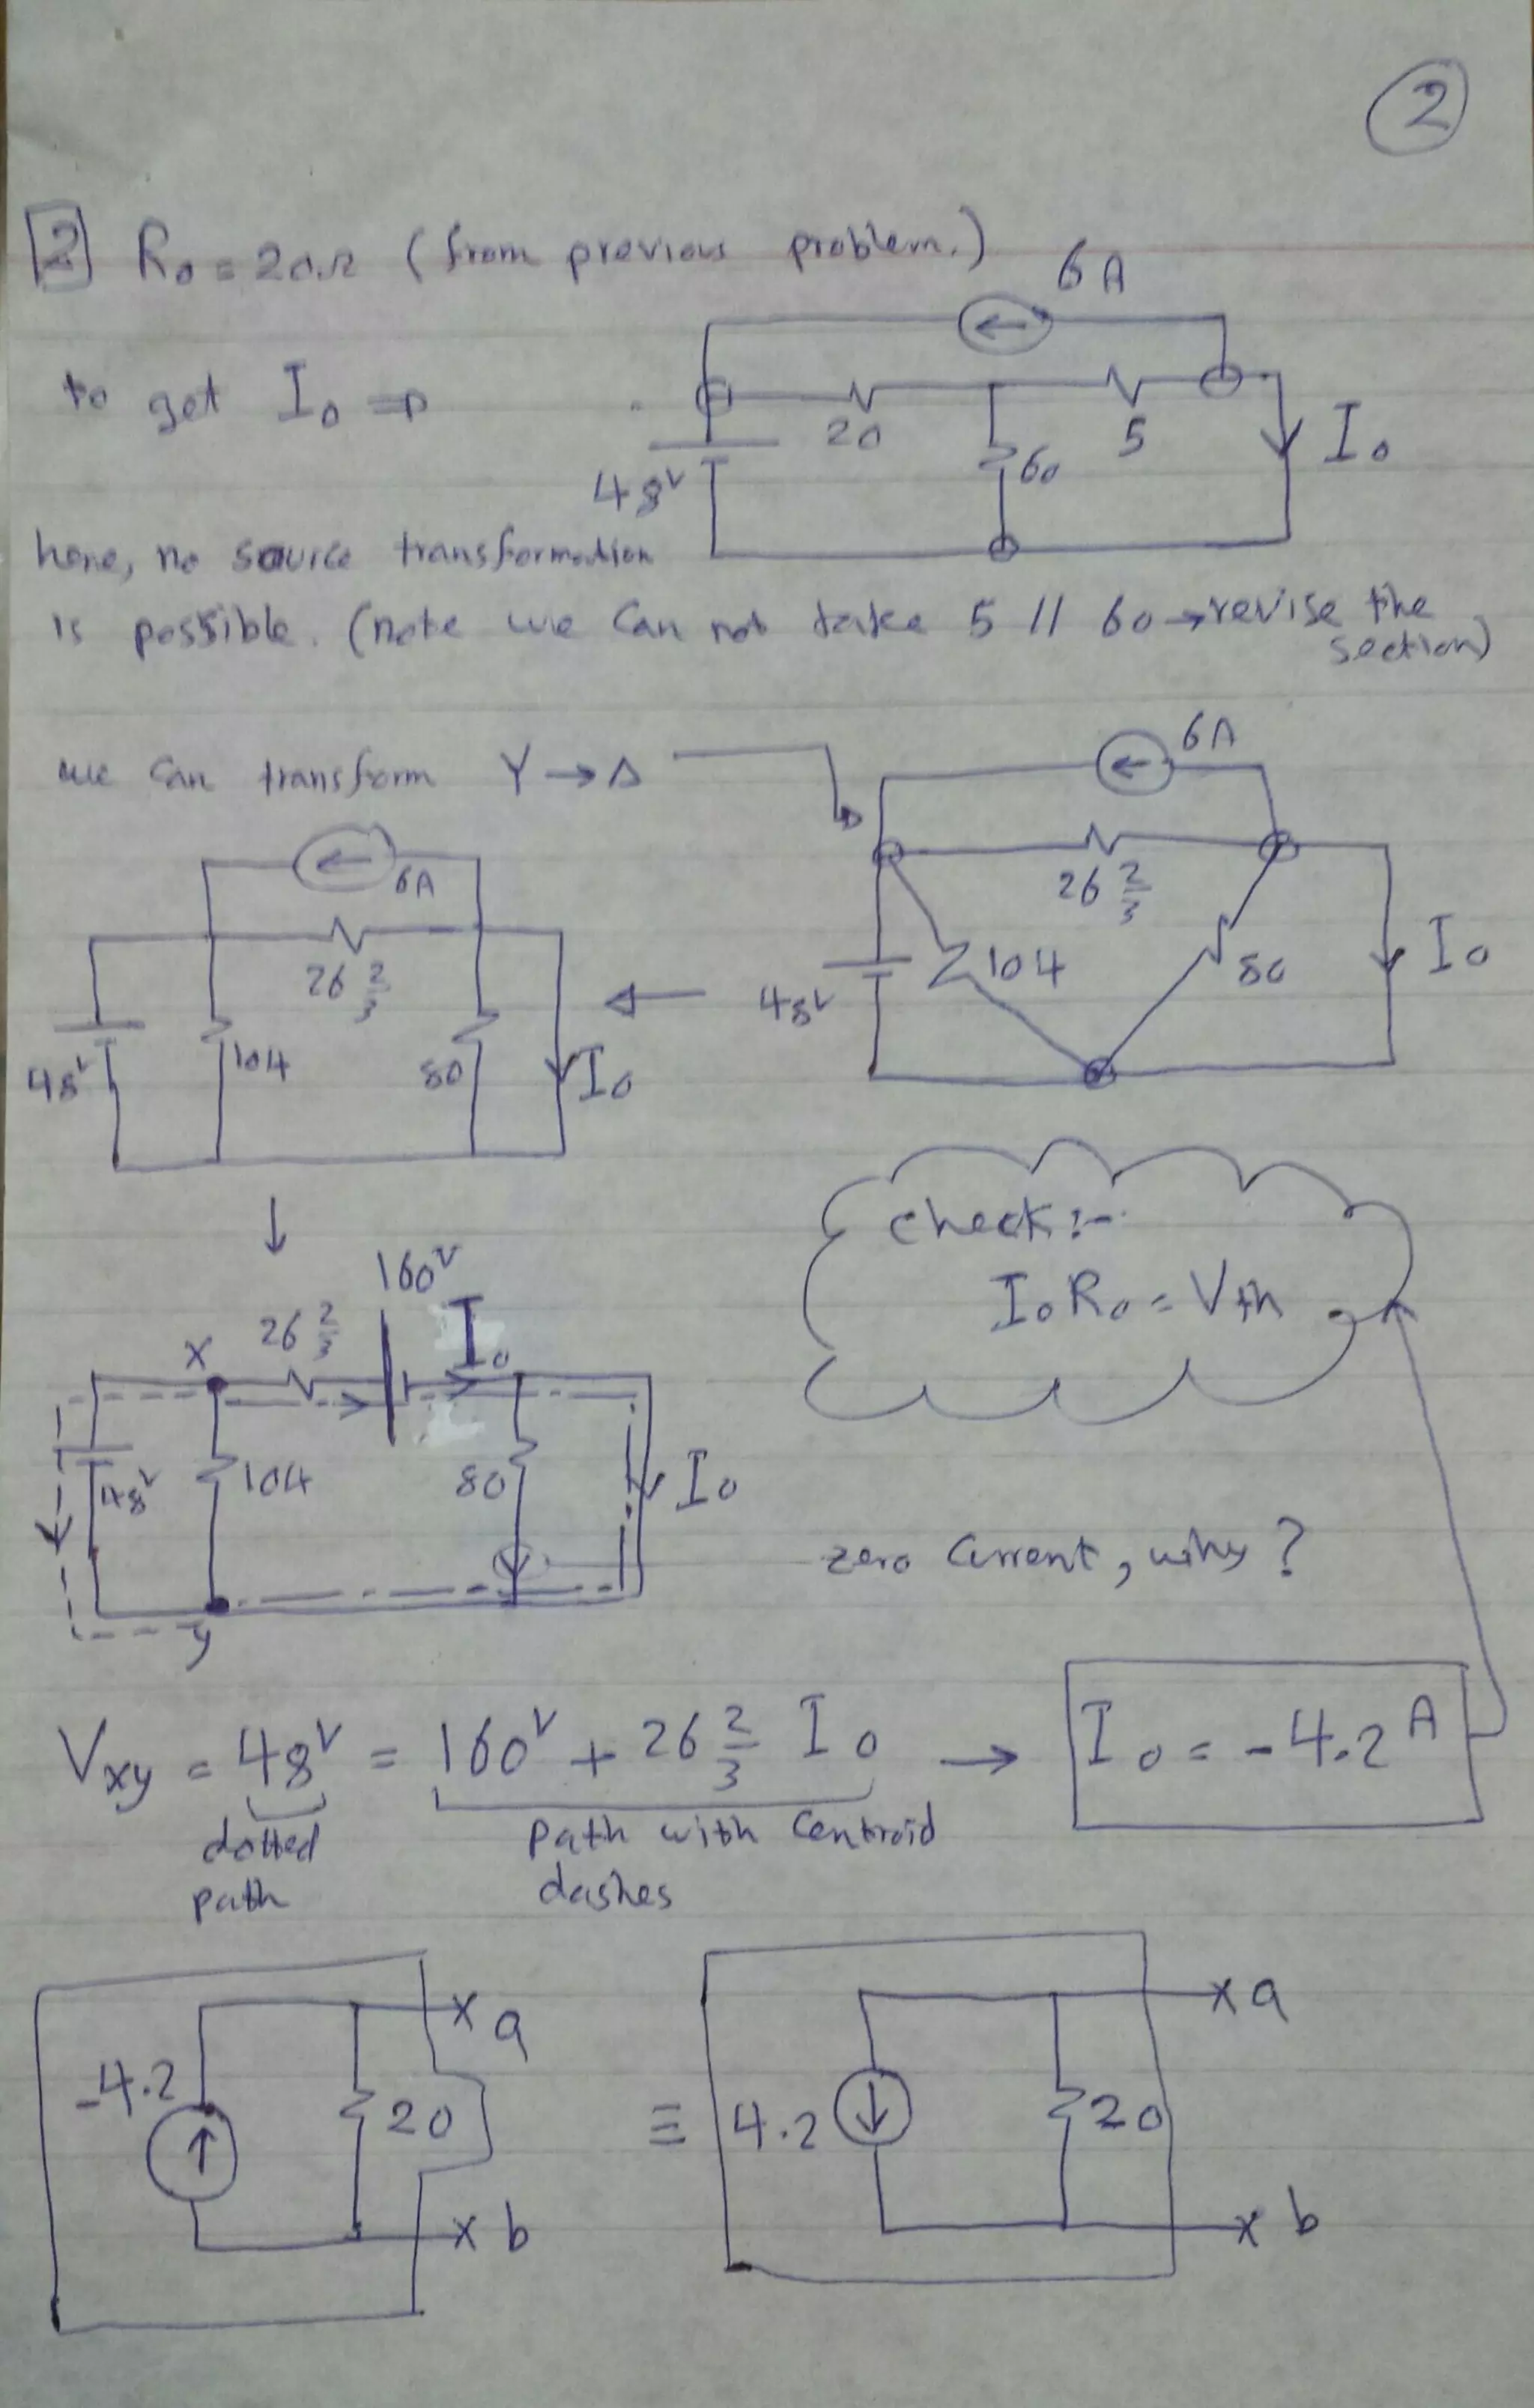 2
2 R₀ = 20Ω (from previous problem.)
6 A
to get I₀ ⇒
20
5
60
I₀
48ᵛ
here, no source transformation
is possible. (note we can not take 5 // 60 → revise the
section)
we can transform Y → Δ
6A
26 2/3
104
80
48ᵛ
I₀
6A
26 2/3
104
80
48ᵛ
I₀
check :-
I₀ R₀ = Vth
160ᵛ
26 2/3
I₀
x
48ᵛ
104
80
I₀
y
zero current, why?
Vxy = 48ᵛ = 160ᵛ + 26 2/3 I₀ → I₀ = -4.2 A
dotted
path
path with centroid
dashes
-4.2
20
x a
x b
≡
4.2
20
x a
x b